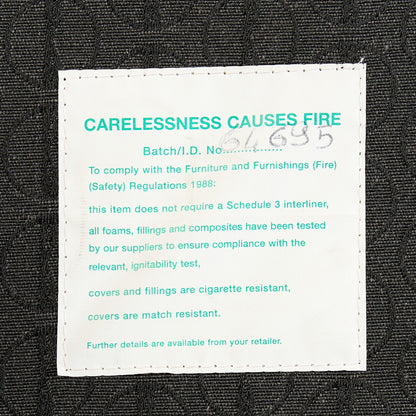 CARELESSNESS CAUSES FIRE
Batch/I.D. No. 64695
To comply with the Furniture and Furnishings (Fire)
(Safety) Regulations 1988:
this item does not require a Schedule 3 interliner,
all foams, fillings and composites have been tested
by our suppliers to ensure compliance with the
relevant, ignitability test,
covers and fillings are cigarette resistant,
covers are match resistant.
Further details are available from your retailer.